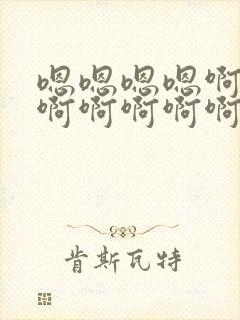 嗯嗯嗯嗯啊
啊啊啊啊啊
肯斯瓦特